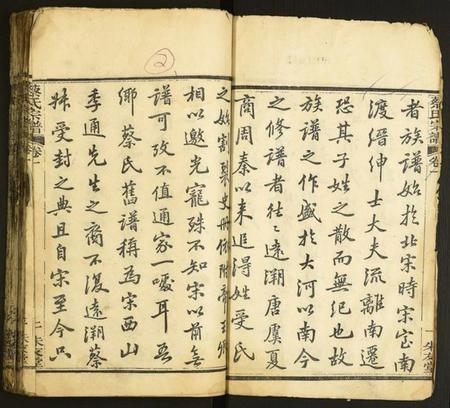 者族譜始於北宋時宋室南
渡縉紳士大夫流離南遷
恐其子姓之散而無紀也故
族譜之作盛於大河以南今
之修譜者往往遠溯唐虞夏
商周秦以来追得姓受氏
之始割裂史冊依附帝王
相以邀光寵殊不知宋以前無
譜可攷不值通家一噱耳吾
鄉蔡氏舊譜稱為宋西山
季通先生之裔不復遠溯蔡
叔受封之典且自宋至今只
蔡氏宗譜 卷一
蔡氏宗譜 卷一
2